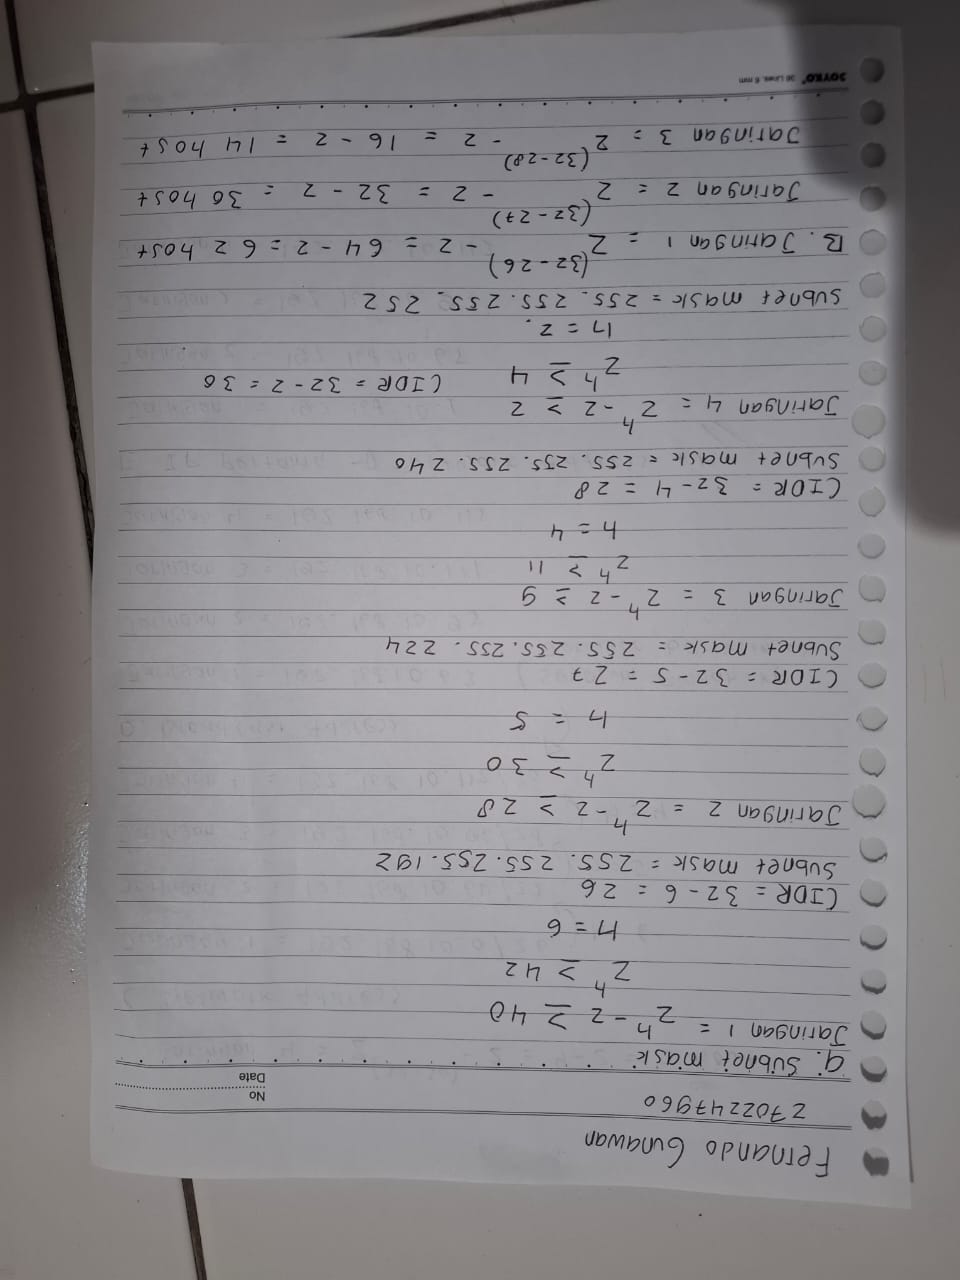 Fernando Gunawan
2702247960
No
Date
a. Subnet mask
Jaringan 1 = 2^h - 2 ≥ 40
2^h ≥ 42
h = 6
CIDR = 32 - 6 = 26
Subnet mask = 255. 255. 255. 192
Jaringan 2 = 2^h - 2 ≥ 28
2^h ≥ 30
h = 5
CIDR = 32 - 5 = 27
Subnet mask = 255. 255. 255. 224
Jaringan 3 = 2^h - 2 ≥ 9
2^h ≥ 11
h = 4
CIDR = 32 - 4 = 28
Subnet mask = 255. 255. 255. 240
Jaringan 4 = 2^h - 2 ≥ 2
2^h ≥ 4 CIDR = 32 - 2 = 30
h = 2.
Subnet mask = 255. 255. 255. 252
B. Jaringan 1 = 2^(32-26) - 2 = 64 - 2 = 62 host
Jaringan 2 = 2^(32-27) - 2 = 32 - 2 = 30 host
Jaringan 3 = 2^(32-28) - 2 = 16 - 2 = 14 host
JOYKO® 36 Lines, 6 mm